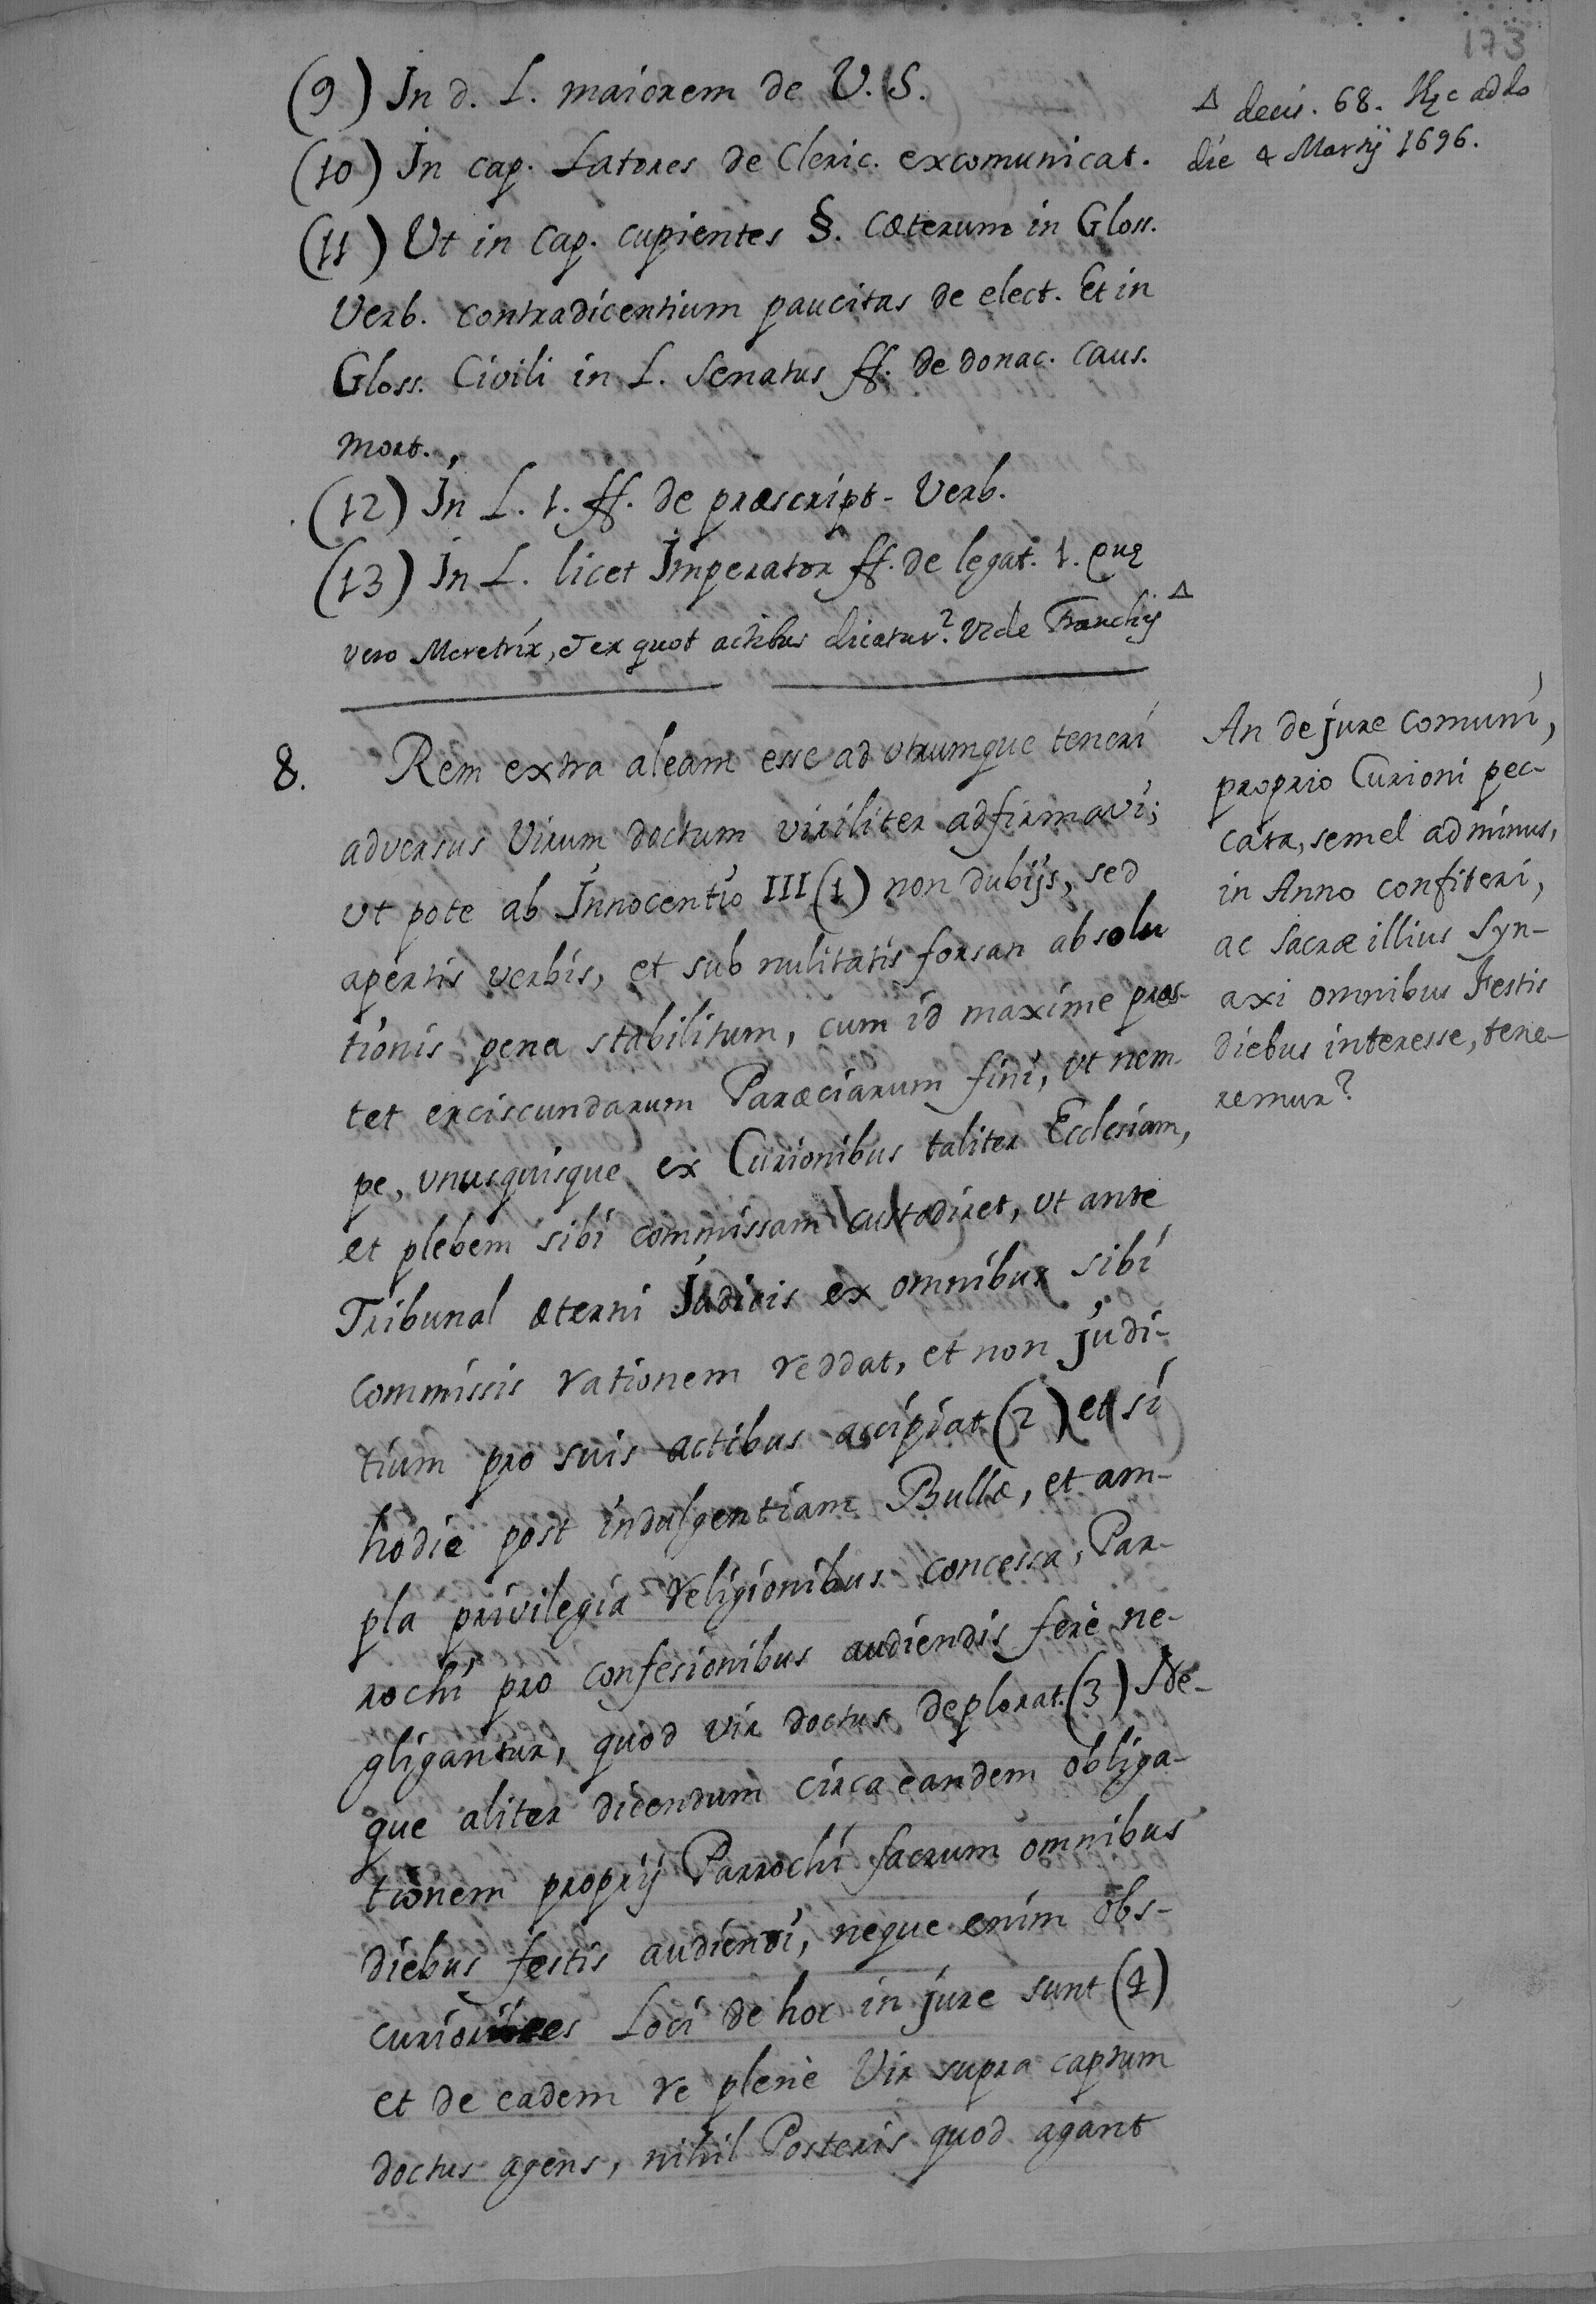 173
(9) In d. L. maiorem de V. S.
(10) In cap. Latores de Cleric. excomunicat.
(11) Ut in Cap. cupientes §. Cæterum in Gloss.
Verb. contradicentium paucitas de elect. Et in
Gloss. Civili in L. Senatus ff. de donac. Caus.
Mort.
(12) In L. 1. ff. de præscript. Verb.
(13) In L. licet Imperator ff. de legat. 1. Quę
vero Meretrix, et ex quot actibus dicatur? Vide Franchij Δ
Δ decis. 68. Hęc addo
die 4 Martij 1696.
8. Rem extra aleam esse ad utrumque teneri
adversus Virum doctum viriliter adfirmavi;
ut pote ab Innocentio III (1) non dubijs, sed
apertis verbis, et sub nulitatis forsan absolu
tionis pena stabilitum, cum id maxime præs-
tet erciscundarum Paræciarum fini, ut nem
pe, unusquisque ex Curionibus taliter Ecclesiam,
et plebem sibi commissam custodiret, ut ante
Tribunal æterni Judicis ex omnibus sibi
commissis rationem reddat, et non judi-
tium pro suis actibus accipiat (2) et si
hodie post indulgentiam Bullæ, et am-
pla privilegia religionibus concessa, Par-
rochi pro confesionibus audiendis fere ne-
gligantur, quod vir doctus deplorat. (3) Ne-
que aliter dicendum circa eandem obliga-
tionem proprij Parrochi sacrum omnibus
diebus festis audiendi, neque enim obs-
curiores Loci de hoc in jure sunt (4)
et de eadem re plenè Vir supra captum
doctus agens, nihil Posteris quod agant
An de jure comuni,
proprio Curioni pec-
cata, semel ad minus,
in Anno confiteri,
ac Sacræ illius Syn-
axi omnibus Festis
diebus interesse, tene-
remur?